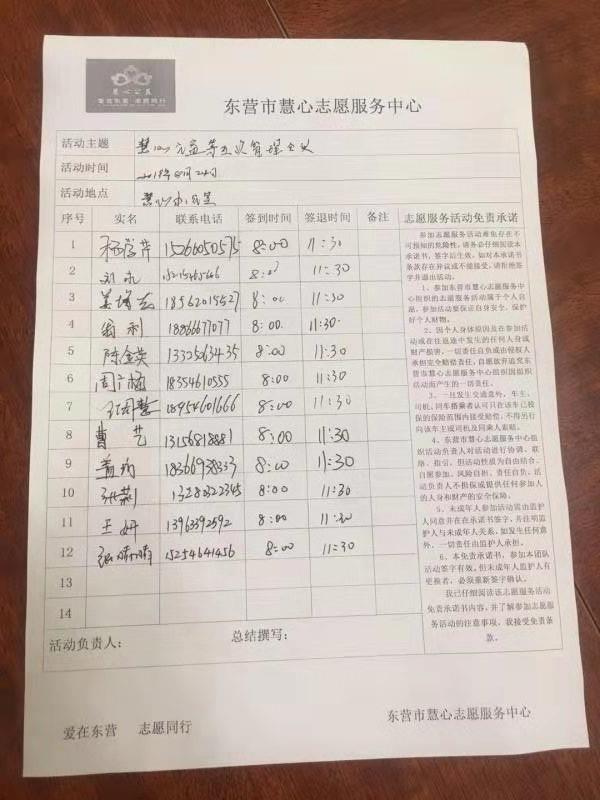 慧心公益
爱在东营 志愿同行
东营市慧心志愿服务中心
活动主题 慧心公益第五次管理会议
活动时间 2018年 月24日
活动地点 慧心办公室
序号 实名 联系电话 签到时间 签退时间 备注 志愿服务活动免责承诺
1 杨学芹 15266050575 8:00 11:30
2 刘永 8:00 11:30
3 18562015627 8:00 11:30
4 利 18866677077 8:00 11:30
5 陈金英 8:00 11:30
6 周 18354610555 8:00 11:30
7 18954601666 8:00 11:30
8 曹艺 13156818881 8:00 11:30
9 8:00 11:30
10 张 13280322345 8:00 11:30
11 王妍 13963592592 8:00 11:30
12 张晴晴 15254641456 8:00 11:30
13
14
参加志愿服务活动难免存在不
可预知的危险性，请务必仔细阅读本
承诺书，签字后生效，如对本承诺书
条款存在异议或不能接受，请拒绝签
字并退出活动。
1、参加东营市慧心志愿服务中
心组织的志愿服务活动属于个人自
愿，参加活动要保证自身安全，保护
好个人财物。
2、因个人身体原因及在参加活
动或在往返途中发生的任何人身或
财产损害，一切责任自负或由侵权人
承担完全赔偿责任，自愿放弃追究东
营市慧心志愿服务中心组织因组织
活动而产生的一切责任。
3、一旦发生交通意外，车主、
司机、同车搭乘者认可只在该车已投
保的保险范围内接受赔偿，不得另行
向该车主或司机及同乘人索赔。
4、东营市慧心志愿服务中心组
织活动负责人对活动进行协调、联
络、指引，但活动性质为自由结合、
自愿参加、风险自担、责任自负，活
动负责人不担保或提供任何参加人
的人身和财产的安全保障。
5、未成年人参加活动需由监护
人同意并在在承诺书签字，并注明监
护人与未成年人关系，如发生任何意
外，一切责任由监护人承担。
6、本免责承诺书，参加本团队
活动签字有效，但未成年人监护人有
更换者，必须重新签字确认。
我已仔细阅读该志愿服务活动
免责承诺书内容，并了解参加志愿服
务活动的注意事项，我接受免责条
款。
活动负责人： 总结撰写：
爱在东营 志愿同行 东营市慧心志愿服务中心